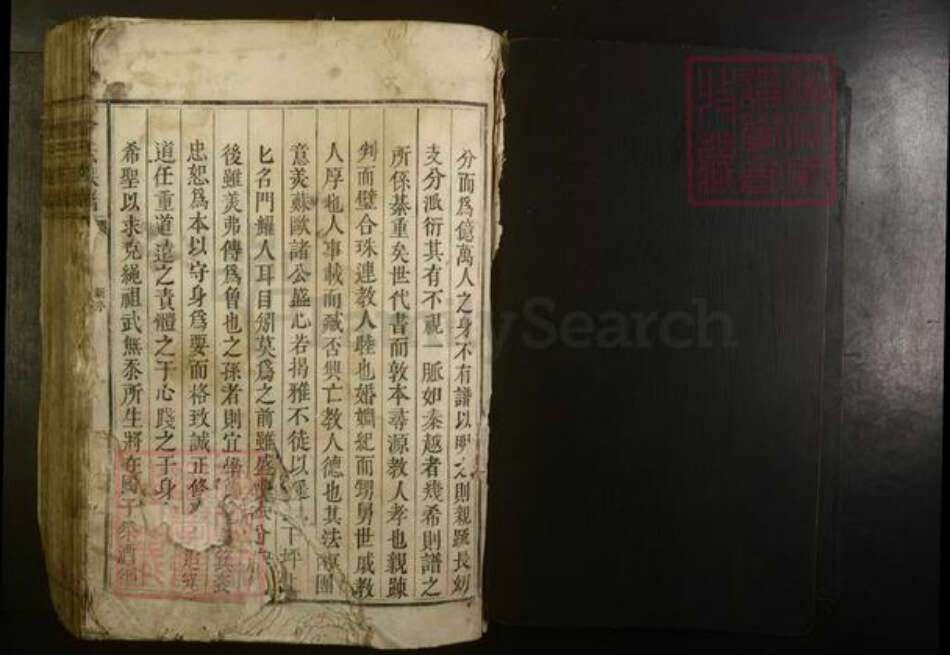 分而爲億萬人之身不有譜以明之則親疏長幼
支分派衍其有不視一脈如秦越者幾希則譜之
所係綦重矣世代書而敦本尋源教人孝也親疎
判而璧合珠連教人睦也婚姻紀而甥舅世戚教
人厚也人事載而臧否興亡教人德也其法
意美蘇歐諸公盛心若揭雅不徒以
匕名門耀人耳目矧莫爲之前雖盛
後雖美弗傳爲魯也之孫者則宜
忠恕爲本以守身爲要而格致誠正修
道任重道遠之責體之于心踐之于身
希聖以求克繩祖武無忝所生將在
新序
MySearch